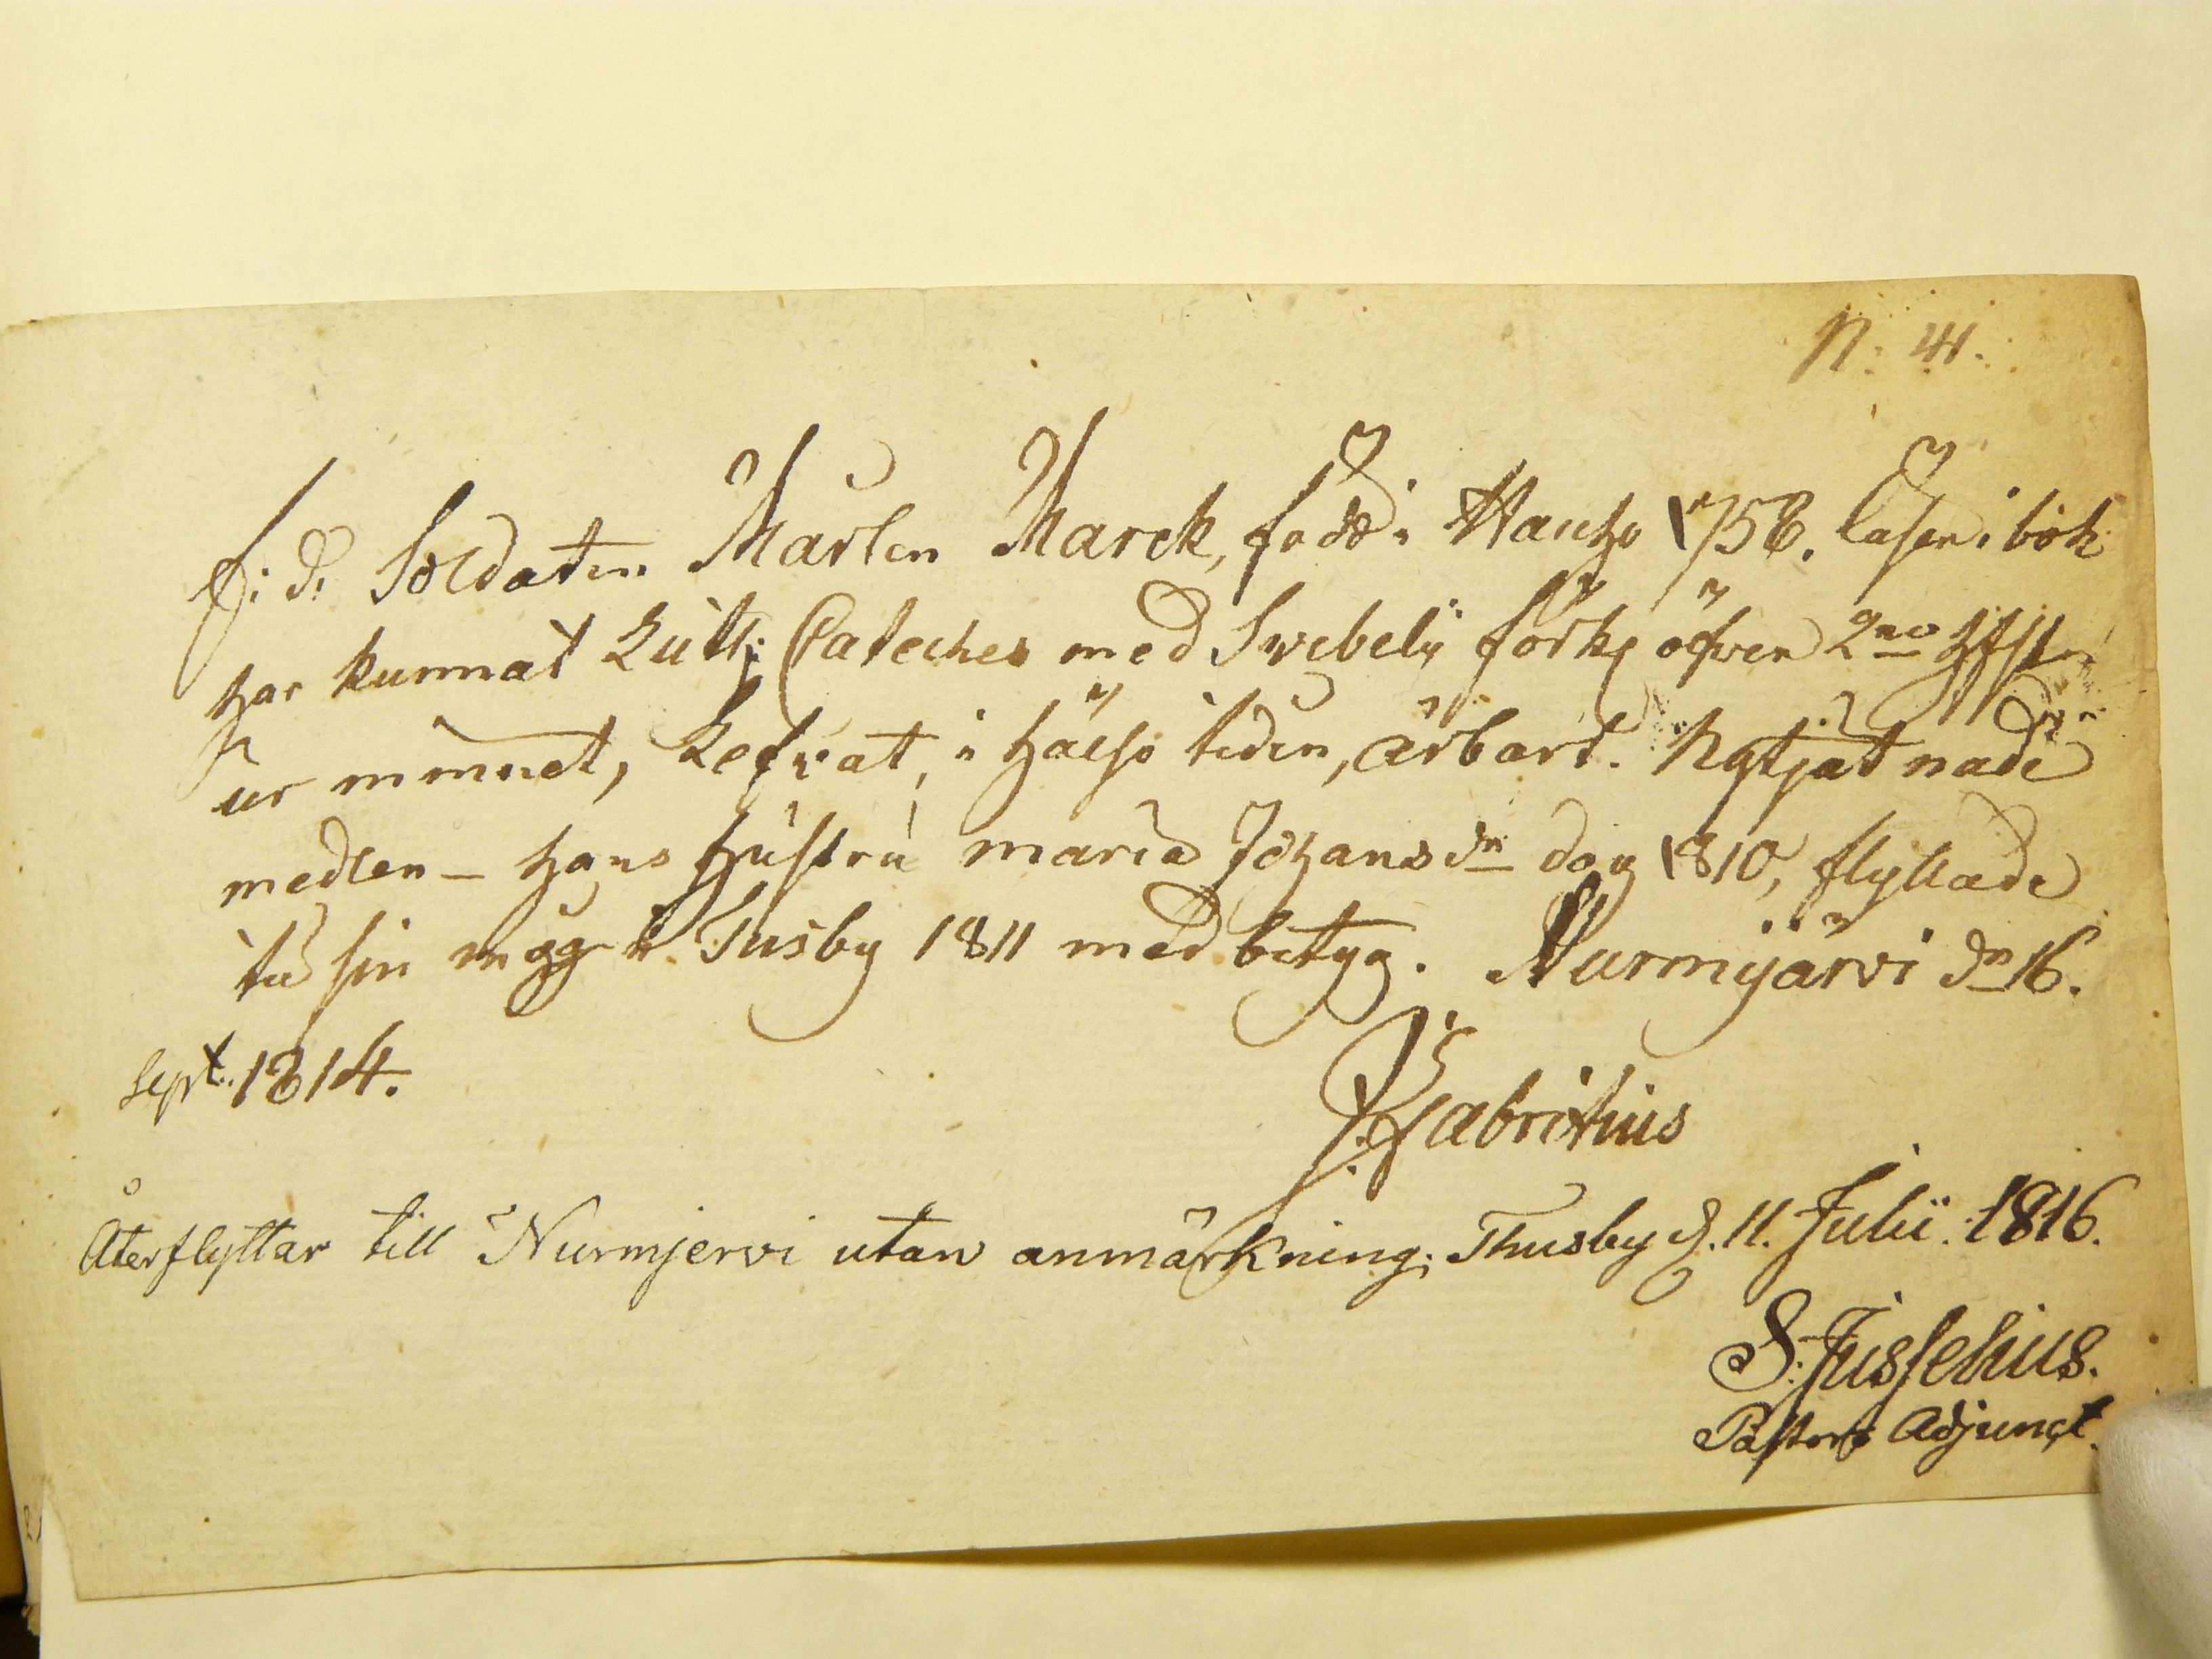 N: 41.
f: d: Soldaten Mårten Marck, född i Haucho 1758. läser i bok
har kunnat Luth: Cateches med Svebelii förkl öfver 2no Hfst
ur minnet, Lefvat, i hälso tiden, ärbart. Nytjat nåde
medlen _ hans hustru maria Johansdr dog 1810, flyttade
till sin måg i Tusby 1811 med betyg. Nurmijärvi dn 16.
Sept. 1814.
J. Fabritius
Återflyttar till Nurmjervi utan anmärkning; Thusby d. 11. Julii. 1816.
S: Jusselius.
Pastors Adjunct.